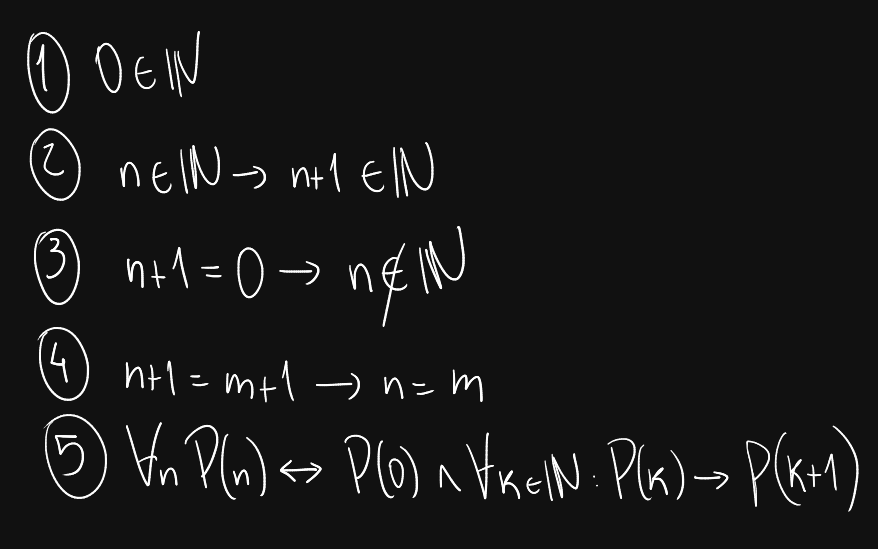 ① 0∈ℕ
② n∈ℕ → n+1 ∈ℕ
③ n+1 = 0 → n∉ℕ
④ n+1 = m+1 → n = m
⑤ ∀n P(n) ↔ P(0) ∧ ∀k∈ℕ : P(k) → P(k+1)